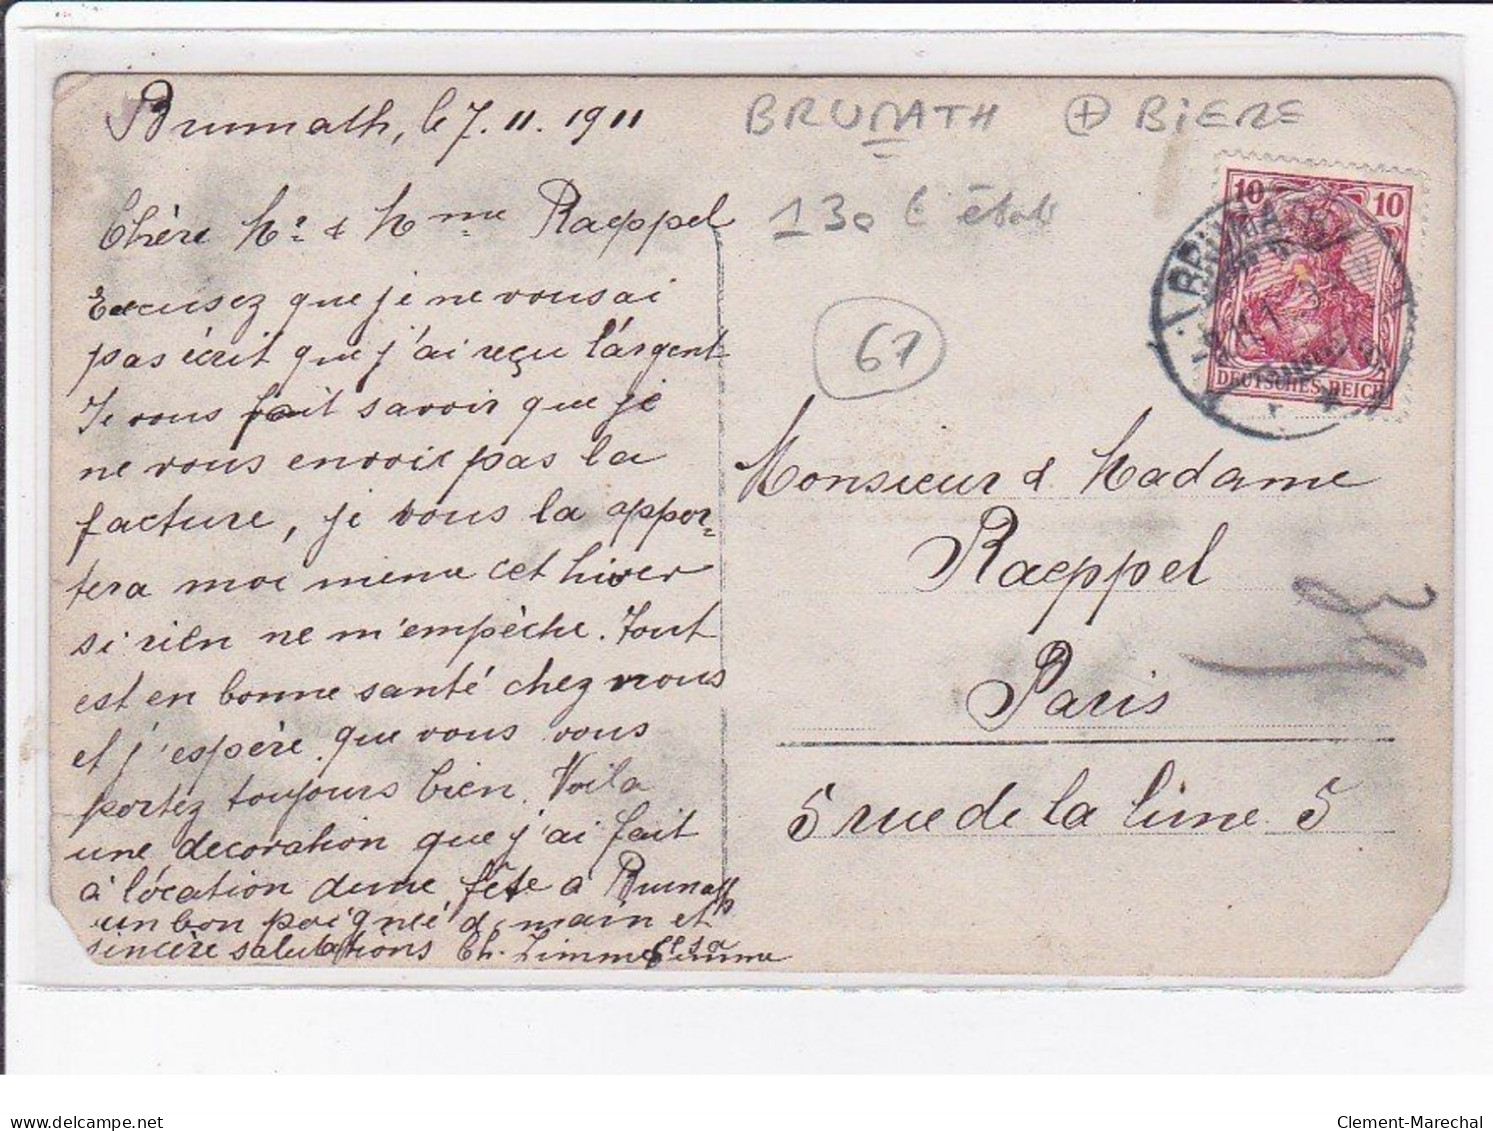 Brumath, le 7.11.1911
Chère Mr & Mme Raeppel
Excusez que je ne vous ai
pas écrit que j'ai reçu l'argent
Je vous fait savoir que je
ne vous envoie pas la
facture, je vous la appor-
tera moi meme cet hiver
si rien ne m'empèche. Tout
est en bonne santé chez nous
et j'espère que vous vous
portez toujours bien. Voila
une decoration que j'ai fait
à l'ocation dune fête a Brumath
un bon poignée d. main et
sincère salutations Ch. Zimmer et sa
femme
BRUMATH + BIERE
130 € état
67
10 10
BRUMATH
DEUTSCHES REICH
Monsieur & Madame
Raeppel
Paris
5 rue de la lune 5
delcampe.net
Clement-Marechal